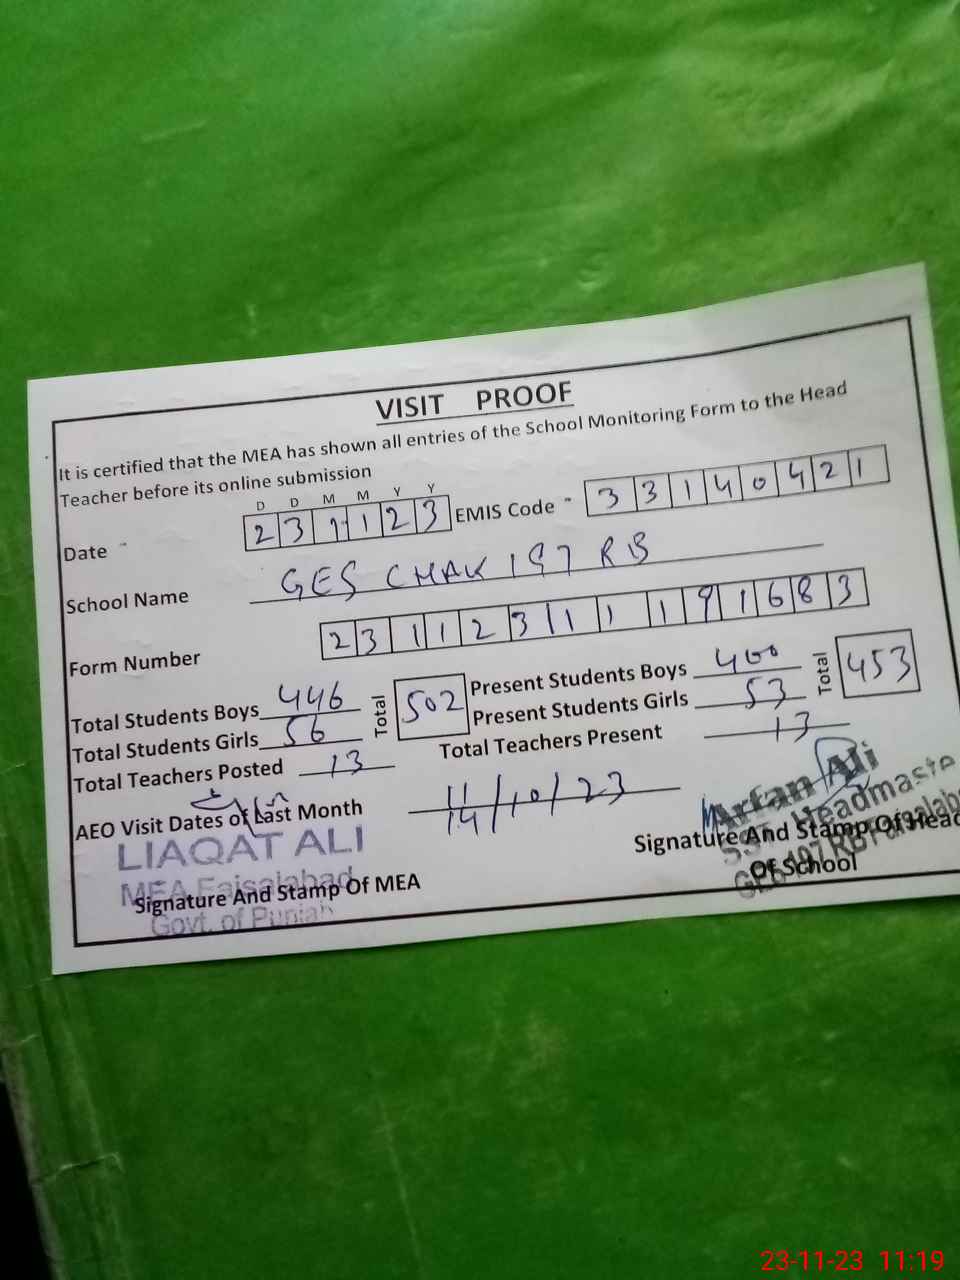 VISIT PROOF
It is certified that the MEA has shown all entries of the School Monitoring Form to the Head
Teacher before its online submission
D D M M Y Y
Date 2 3 1 1 2 3 EMIS Code 3 3 1 4 0 4 2 1
School Name GES CHAK 197 RB
Form Number 2 3 1 1 2 3 1 1 1 9 1 6 8 3
Total Students Boys 446 Total 502 Present Students Boys 400 Total 453
Total Students Girls 56 Present Students Girls 53
Total Teachers Posted 13 Total Teachers Present 13
AEO Visit Dates of Last Month 11/10/23
14
LIAQAT ALI
MEA Faisalabad
Govt. of Punjab
Signature And Stamp Of MEA
Arfan Ali
Headmaste
197 RB Faisalab
Signature And Stamp Of Head
Of School
23-11-23 11:19